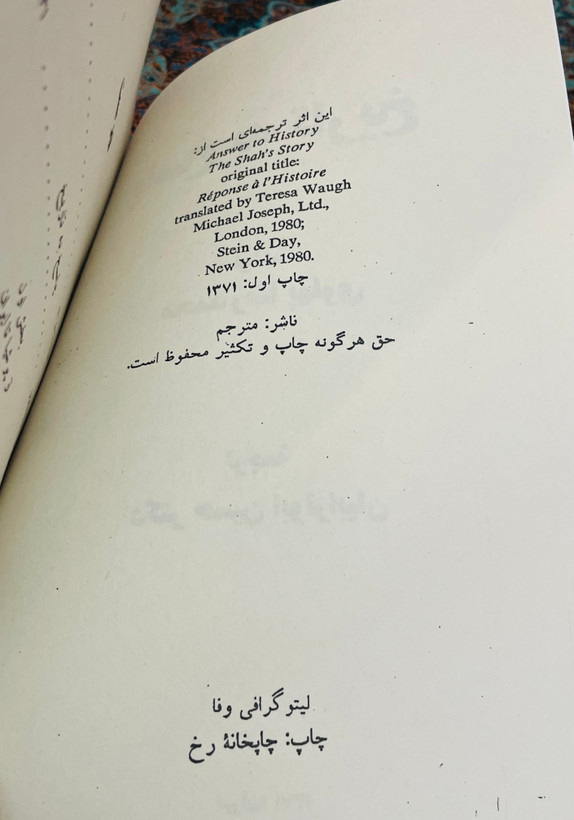 این اثر ترجمه‌ای است از:
Answer to History
The Shah's Story
original title:
Réponse à l'Histoire
translated by Teresa Waugh
Michael Joseph, Ltd.,
London, 1980;
Stein & Day,
New York, 1980.
چاپ اول: ۱۳۷۱
ناشر: مترجم
حق هرگونه چاپ و تکثیر محفوظ است.
لیتوگرافی وفا
چاپ: چاپخانهٔ رخ